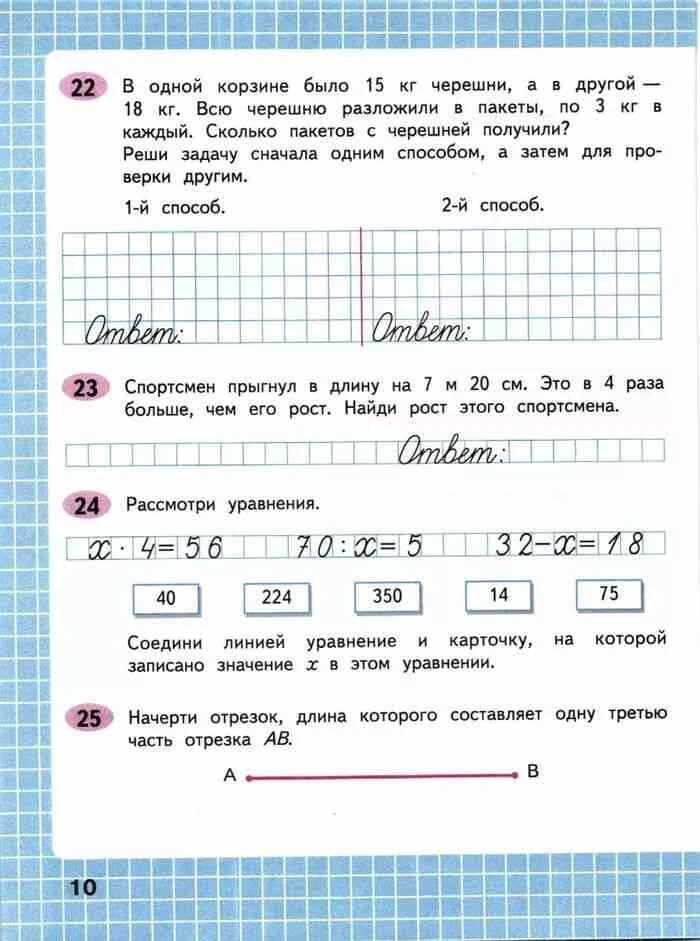 22 В одной корзине было 15 кг черешни, а в другой —
18 кг. Всю черешню разложили в пакеты, по 3 кг в
каждый. Сколько пакетов с черешней получили?
Реши задачу сначала одним способом, а затем для про-
верки другим.
1-й способ. 2-й способ.
Ответ: Ответ:
23 Спортсмен прыгнул в длину на 7 м 20 см. Это в 4 раза
больше, чем его рост. Найди рост этого спортсмена.
Ответ:
24 Рассмотри уравнения.
x · 4 = 56 70 : x = 5 32 − x = 18
40 224 350 14 75
Соедини линией уравнение и карточку, на которой
записано значение x в этом уравнении.
25 Начерти отрезок, длина которого составляет одну третью
часть отрезка AB.
A B
10